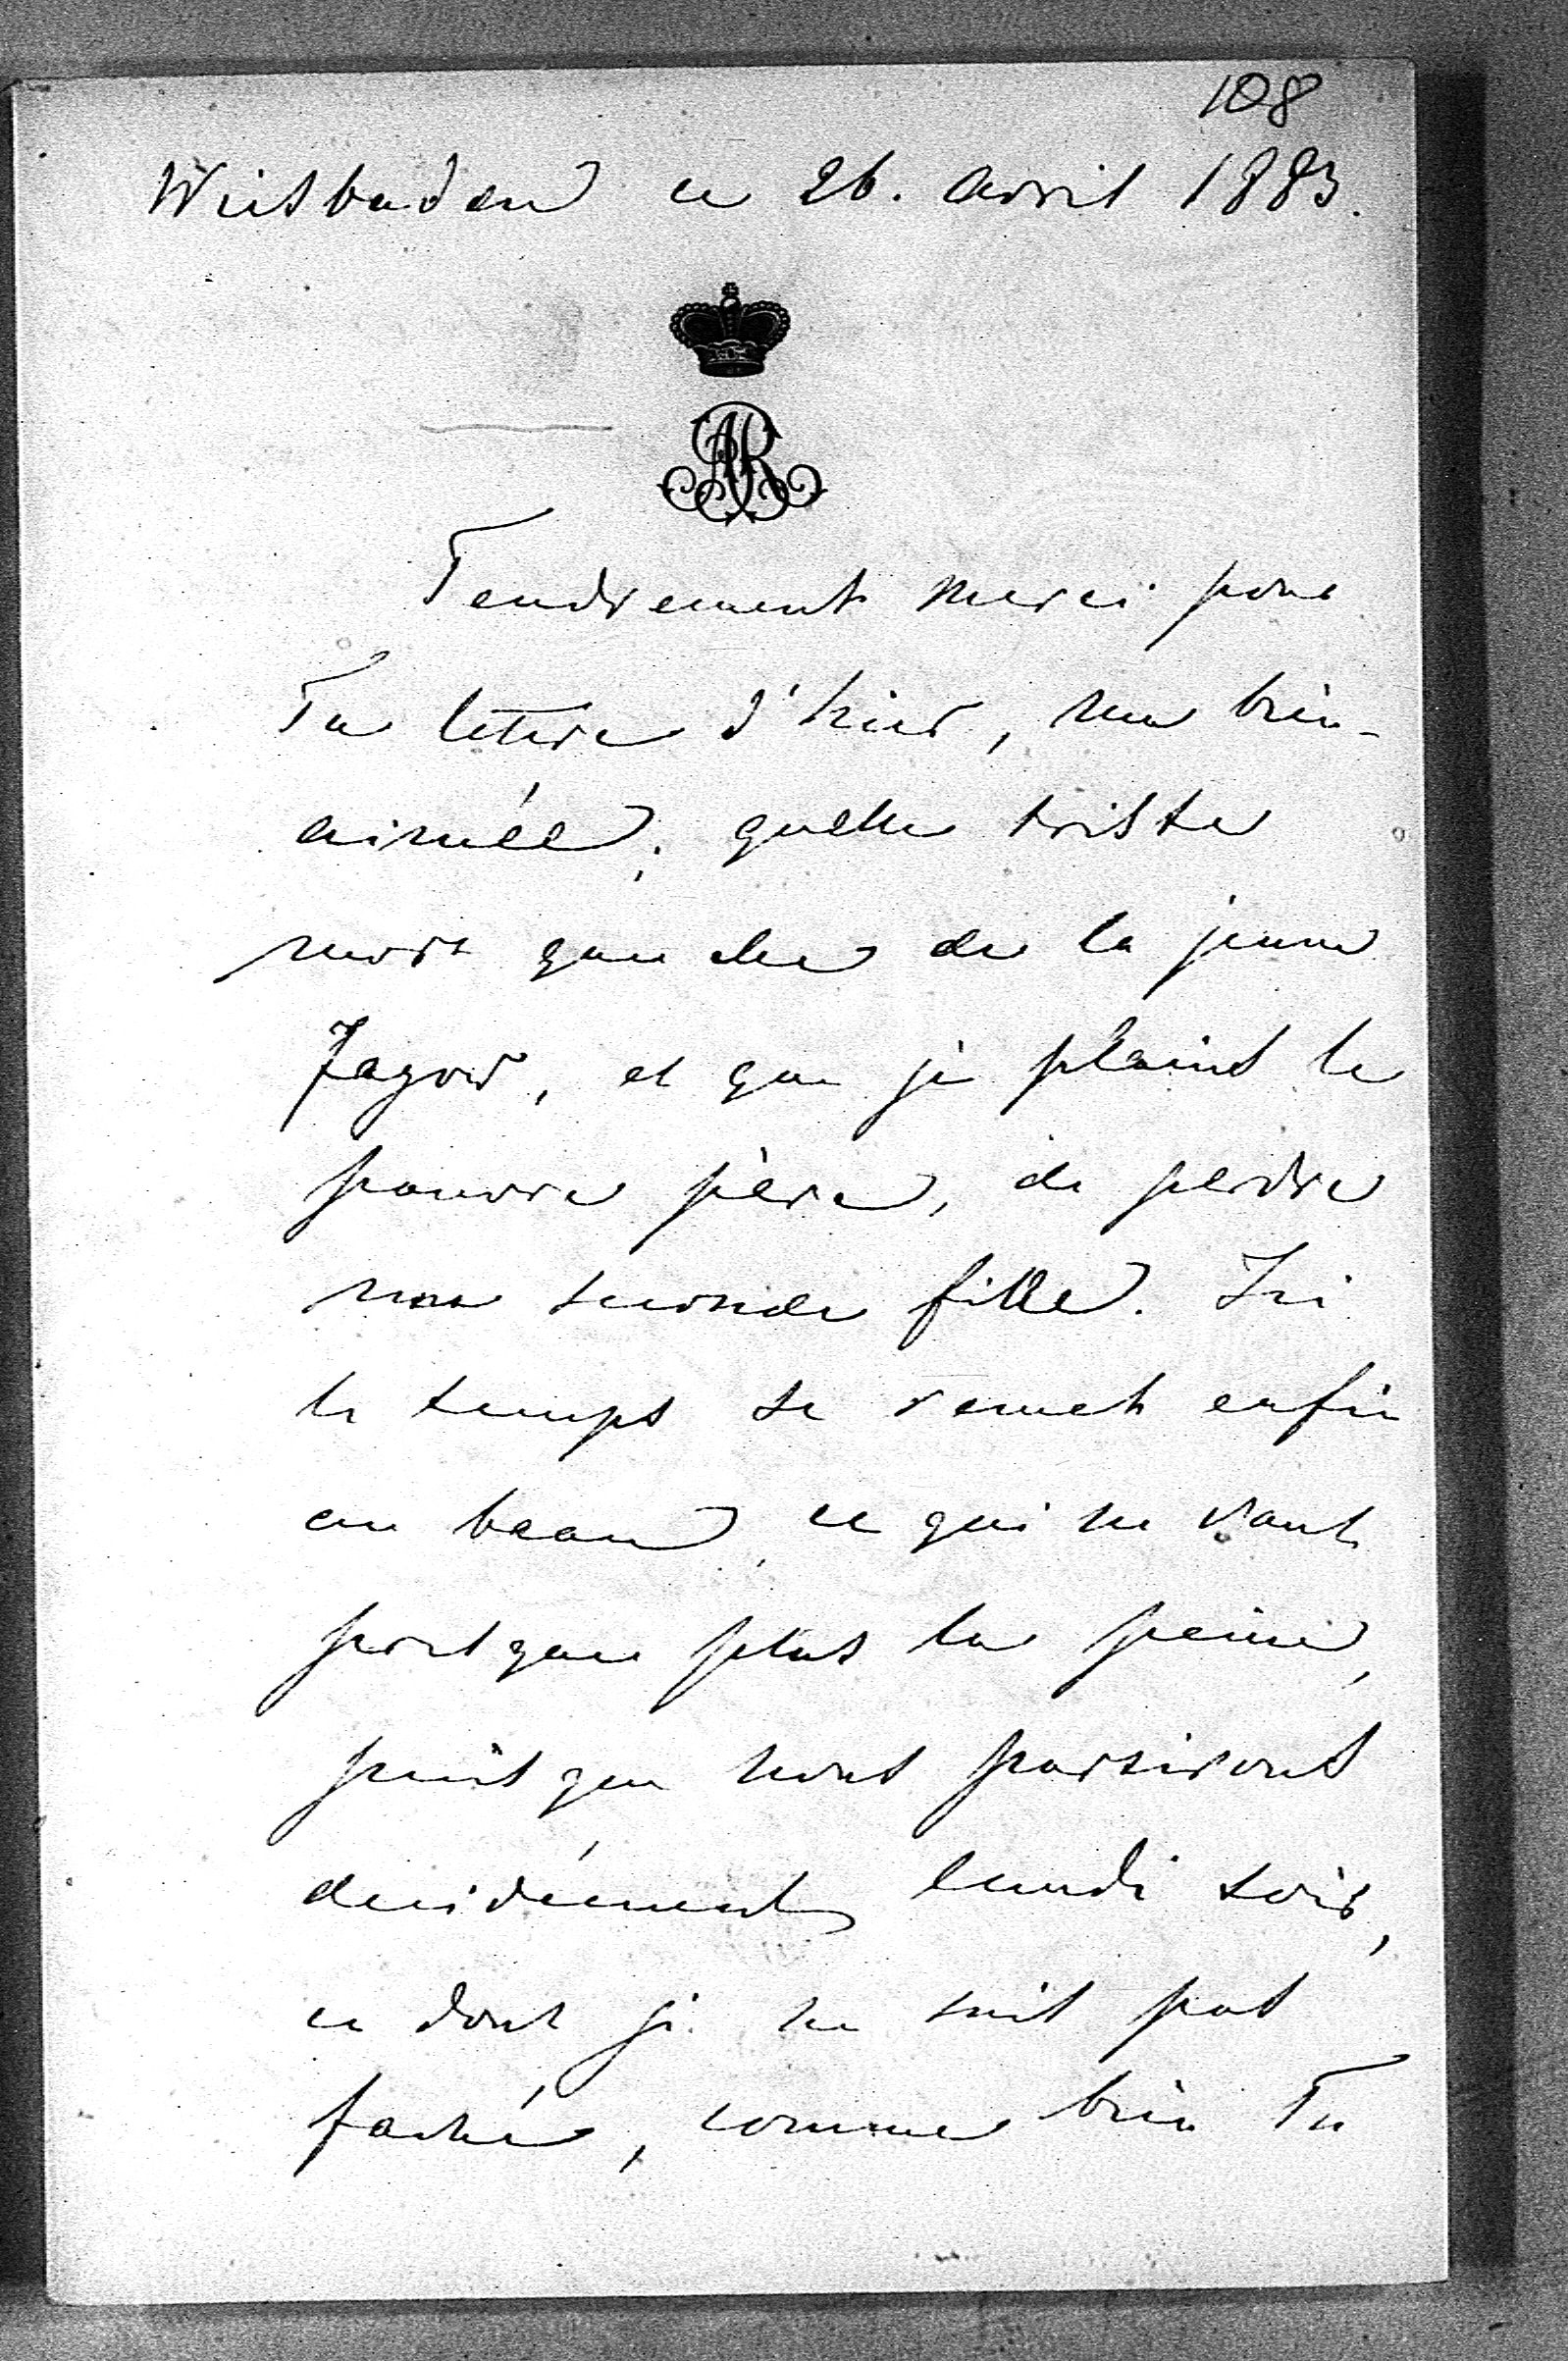 108
Wiesbaden ce 26. avril 1883.
AR
Tendrement merci pour
Ta lettre d'hier, ma bien-
aimée; quelle triste
mort que celle de la jeune
Jagow, et que je plains le
pauvre père, de perdre
une seconde fille. Ici
le temps se remet enfin
au beau, ce qui ne vaut
presque plus la peine,
puisque nous partirons
decidément lundi soir,
ce dont je ne suis pas
fachée, comme bien Tu